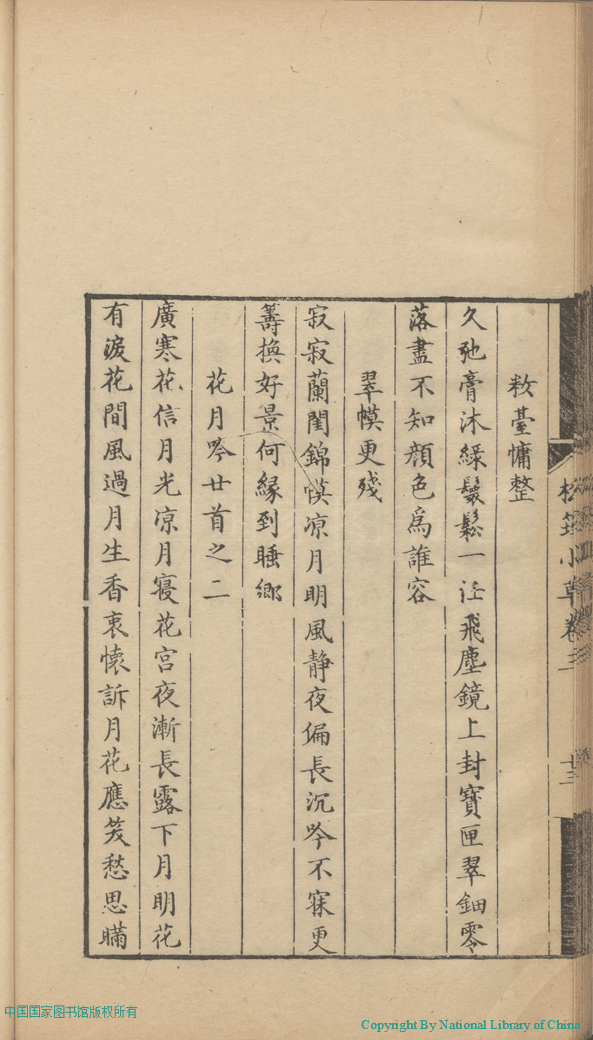 松筠小草卷三
籹臺慵整
久弛膏沐綠鬟鬆一任飛塵鏡上封寶匣翠鈿零
落盡不知顔色爲誰容
翠幙更殘
寂寂蘭閨錦幙凉月明風静夜偏長沉吟不寐更
籌換好景何緣到睡鄉
花月吟廿首之二
廣寒花信月光凉月寢花宫夜漸長露下月明花
有淚花間風過月生香衷懷訴月花應笑愁思瞞
中国国家图书馆版权所有
Copyright By National Library of China